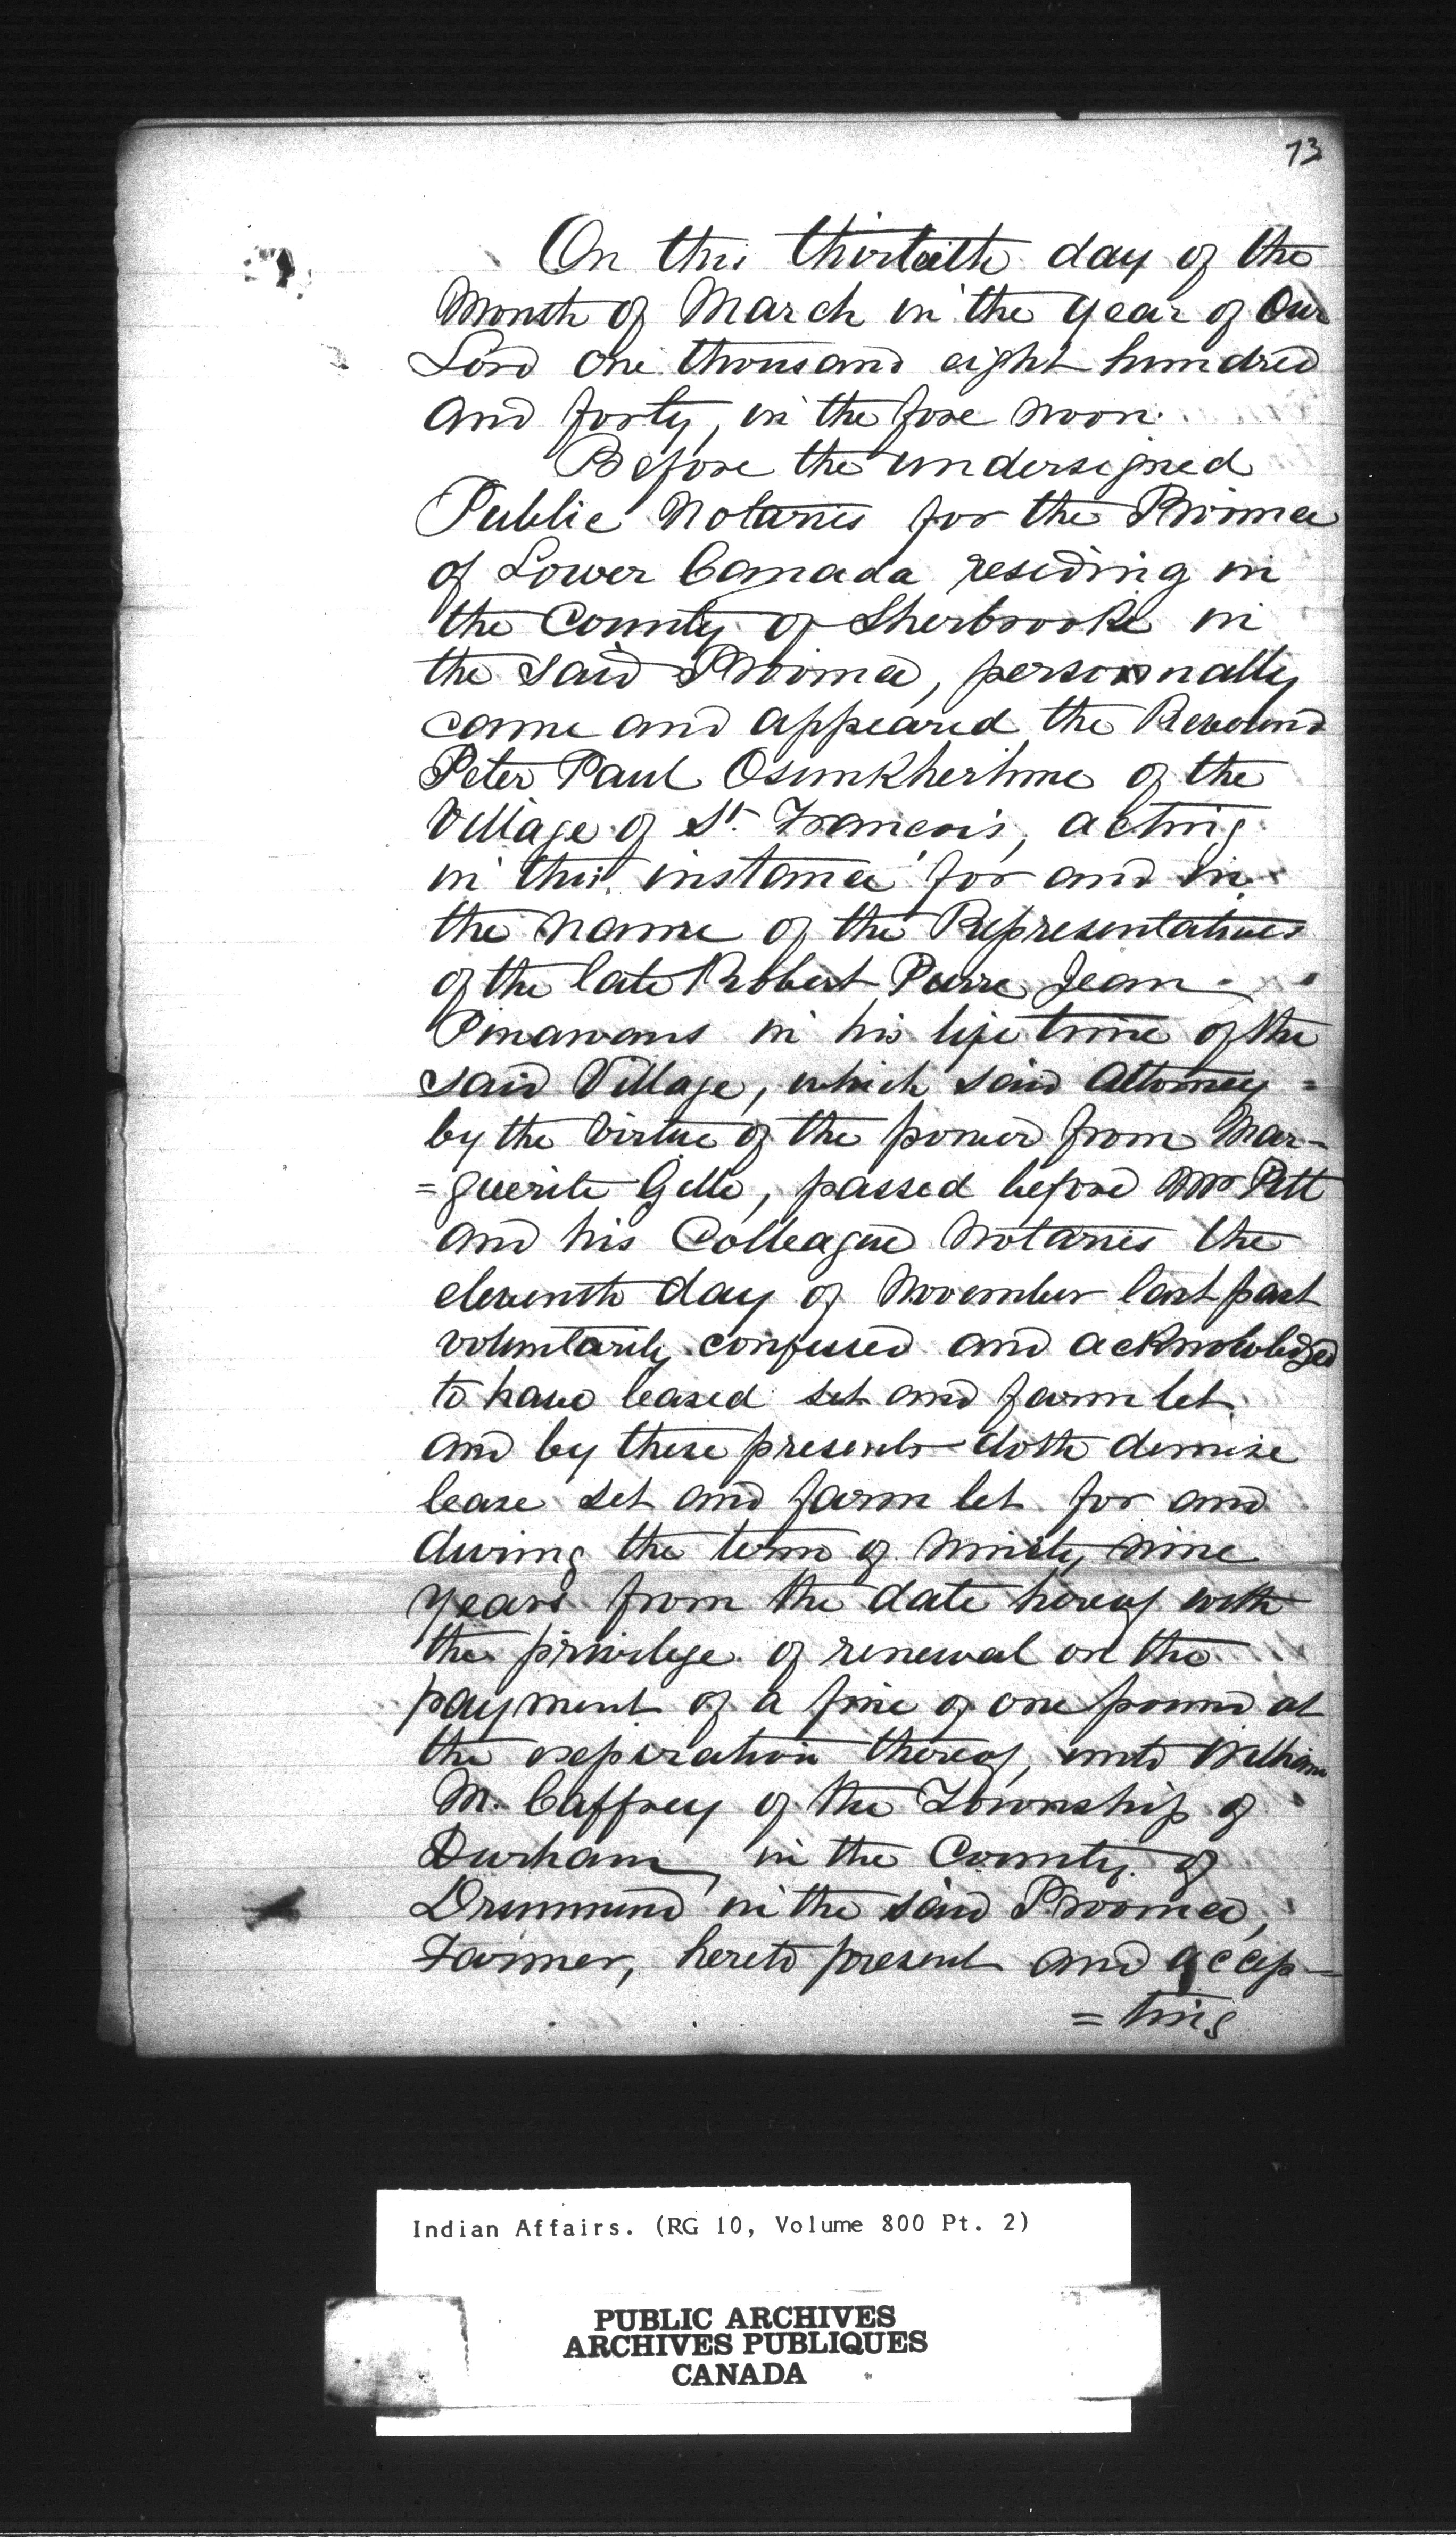 73
On this thirtieth day of the
Month of March in the year of Our
Lord one thousand eight hundred
and forty, in the fore noon.
Before the undersigned
Public Notaries for the Province
of Lower Canada residing in
the County of Sherbrooke in
the said Province, personnally
came and appeared the Reverend
Peter Paul Osunkherhine of the
Village of St. Francois, acting
in this instance for and in
the name of the Representatives
of the late Robert Pierre Jean
Pinawans in his life time of the
said Village, which said Attorney =
by the virtue of the power from Mar-
=guerite Gille, passed before Pitt
and his Colleague Notaries the
eleventh day of November last past
voluntarily confessed and acknowledged
to have leased set and farm let
and by these presents doth demise
lease set and farm let for and
during the term of ninety nine
years from the date hereof with
the privilege of renewal on the
payment of a fine of one pound at
the expiration thereof, unto William
Mc Caffrey of the Township of
Durham, in the County of
Drummond in the said Province,
Farmer, hereto present and accep-
= ting
Indian Affairs. (RG 10, Volume 800 Pt. 2)
PUBLIC ARCHIVES
ARCHIVES PUBLIQUES
CANADA